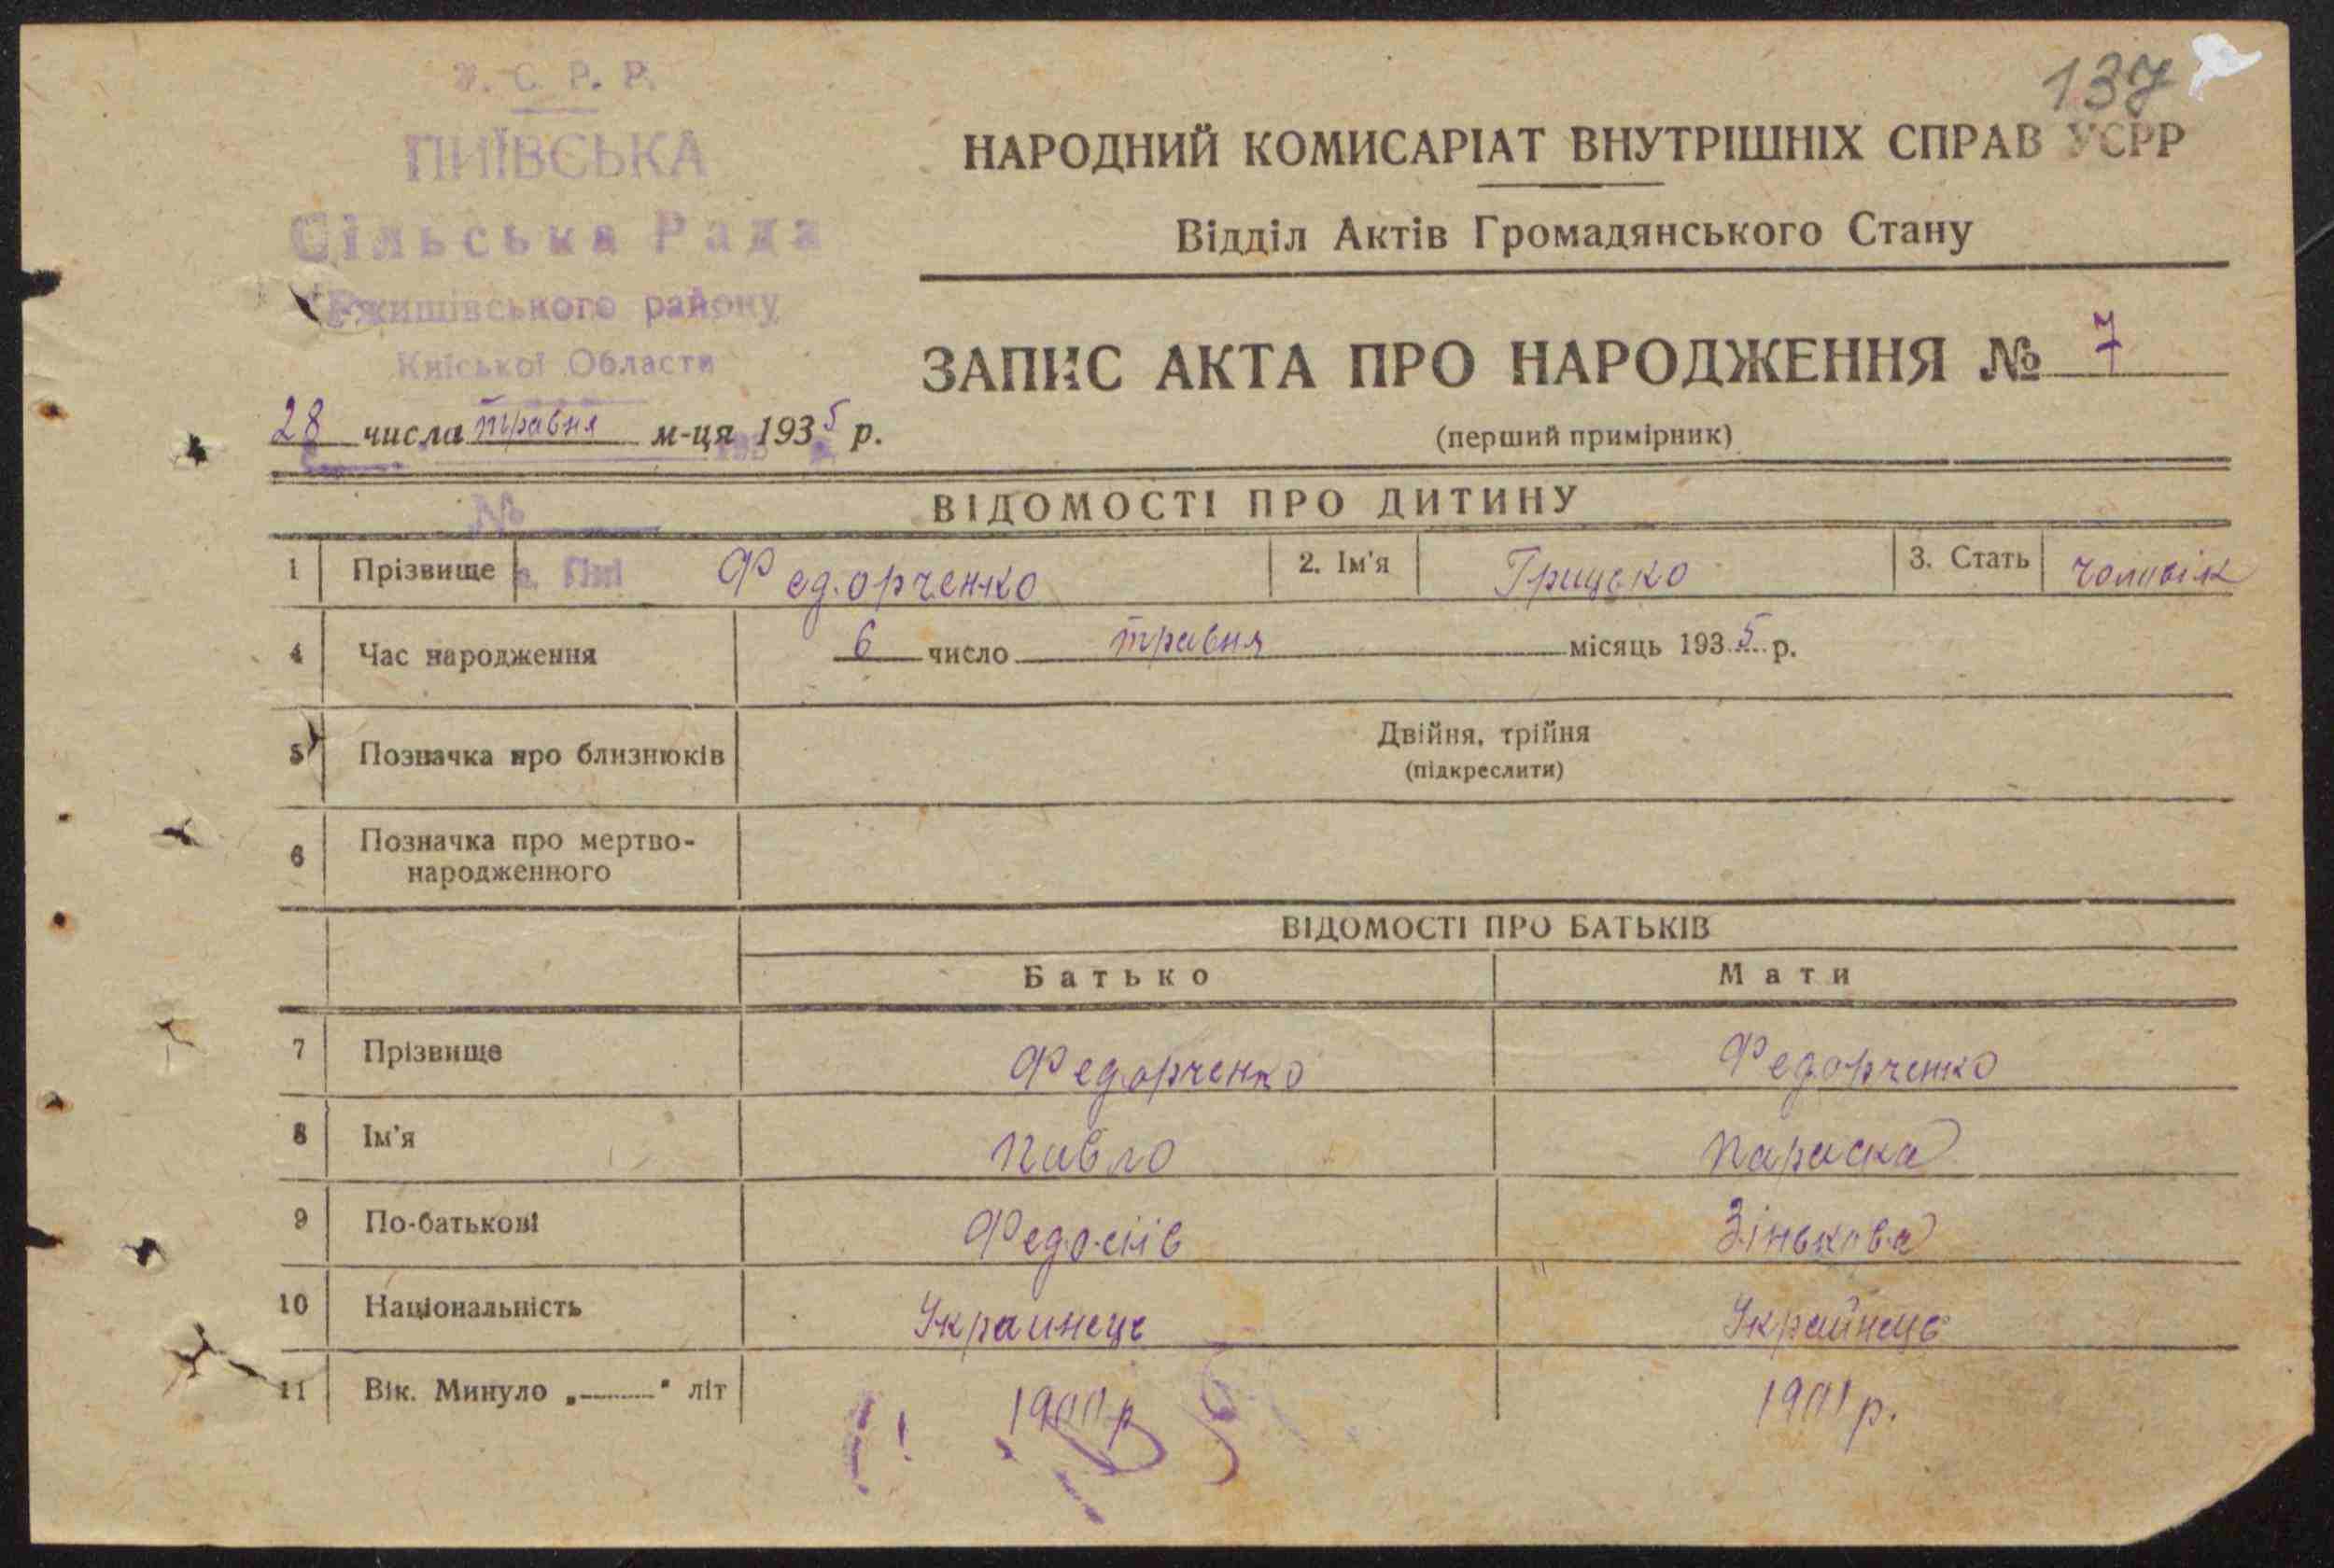 137
У. С. Р. Р.
ПИЇВСЬКА
Сільська Рада
Ржищівського району
Киіської Області
28 числа травня м-ця 1935 р.
№
НАРОДНИЙ КОМИСАРІАТ ВНУТРІШНІХ СПРАВ УСРР
Відділ Актів Громадянського Стану
ЗАПИС АКТА ПРО НАРОДЖЕННЯ № 7
(перший примірник)
ВІДОМОСТІ ПРО ДИТИНУ
1 Прізвище Федорченко 2. Ім'я Грицько 3. Стать чоловік
4 Час народження 6 число травня місяць 1935 р.
5 Позначка про близнюків Двійня, трійня
(підкреслити)
6 Позначка про мертво-
народженного
ВІДОМОСТІ ПРО БАТЬКІВ
Батько Мати
7 Прізвище Федорченко Федорченко
8 Ім'я Павло Параска
9 По-батькові Федосіів Зінькова
10 Національність Украинець Украйнець
11 Вік. Минуло „ " літ 1900 р 1901 р.